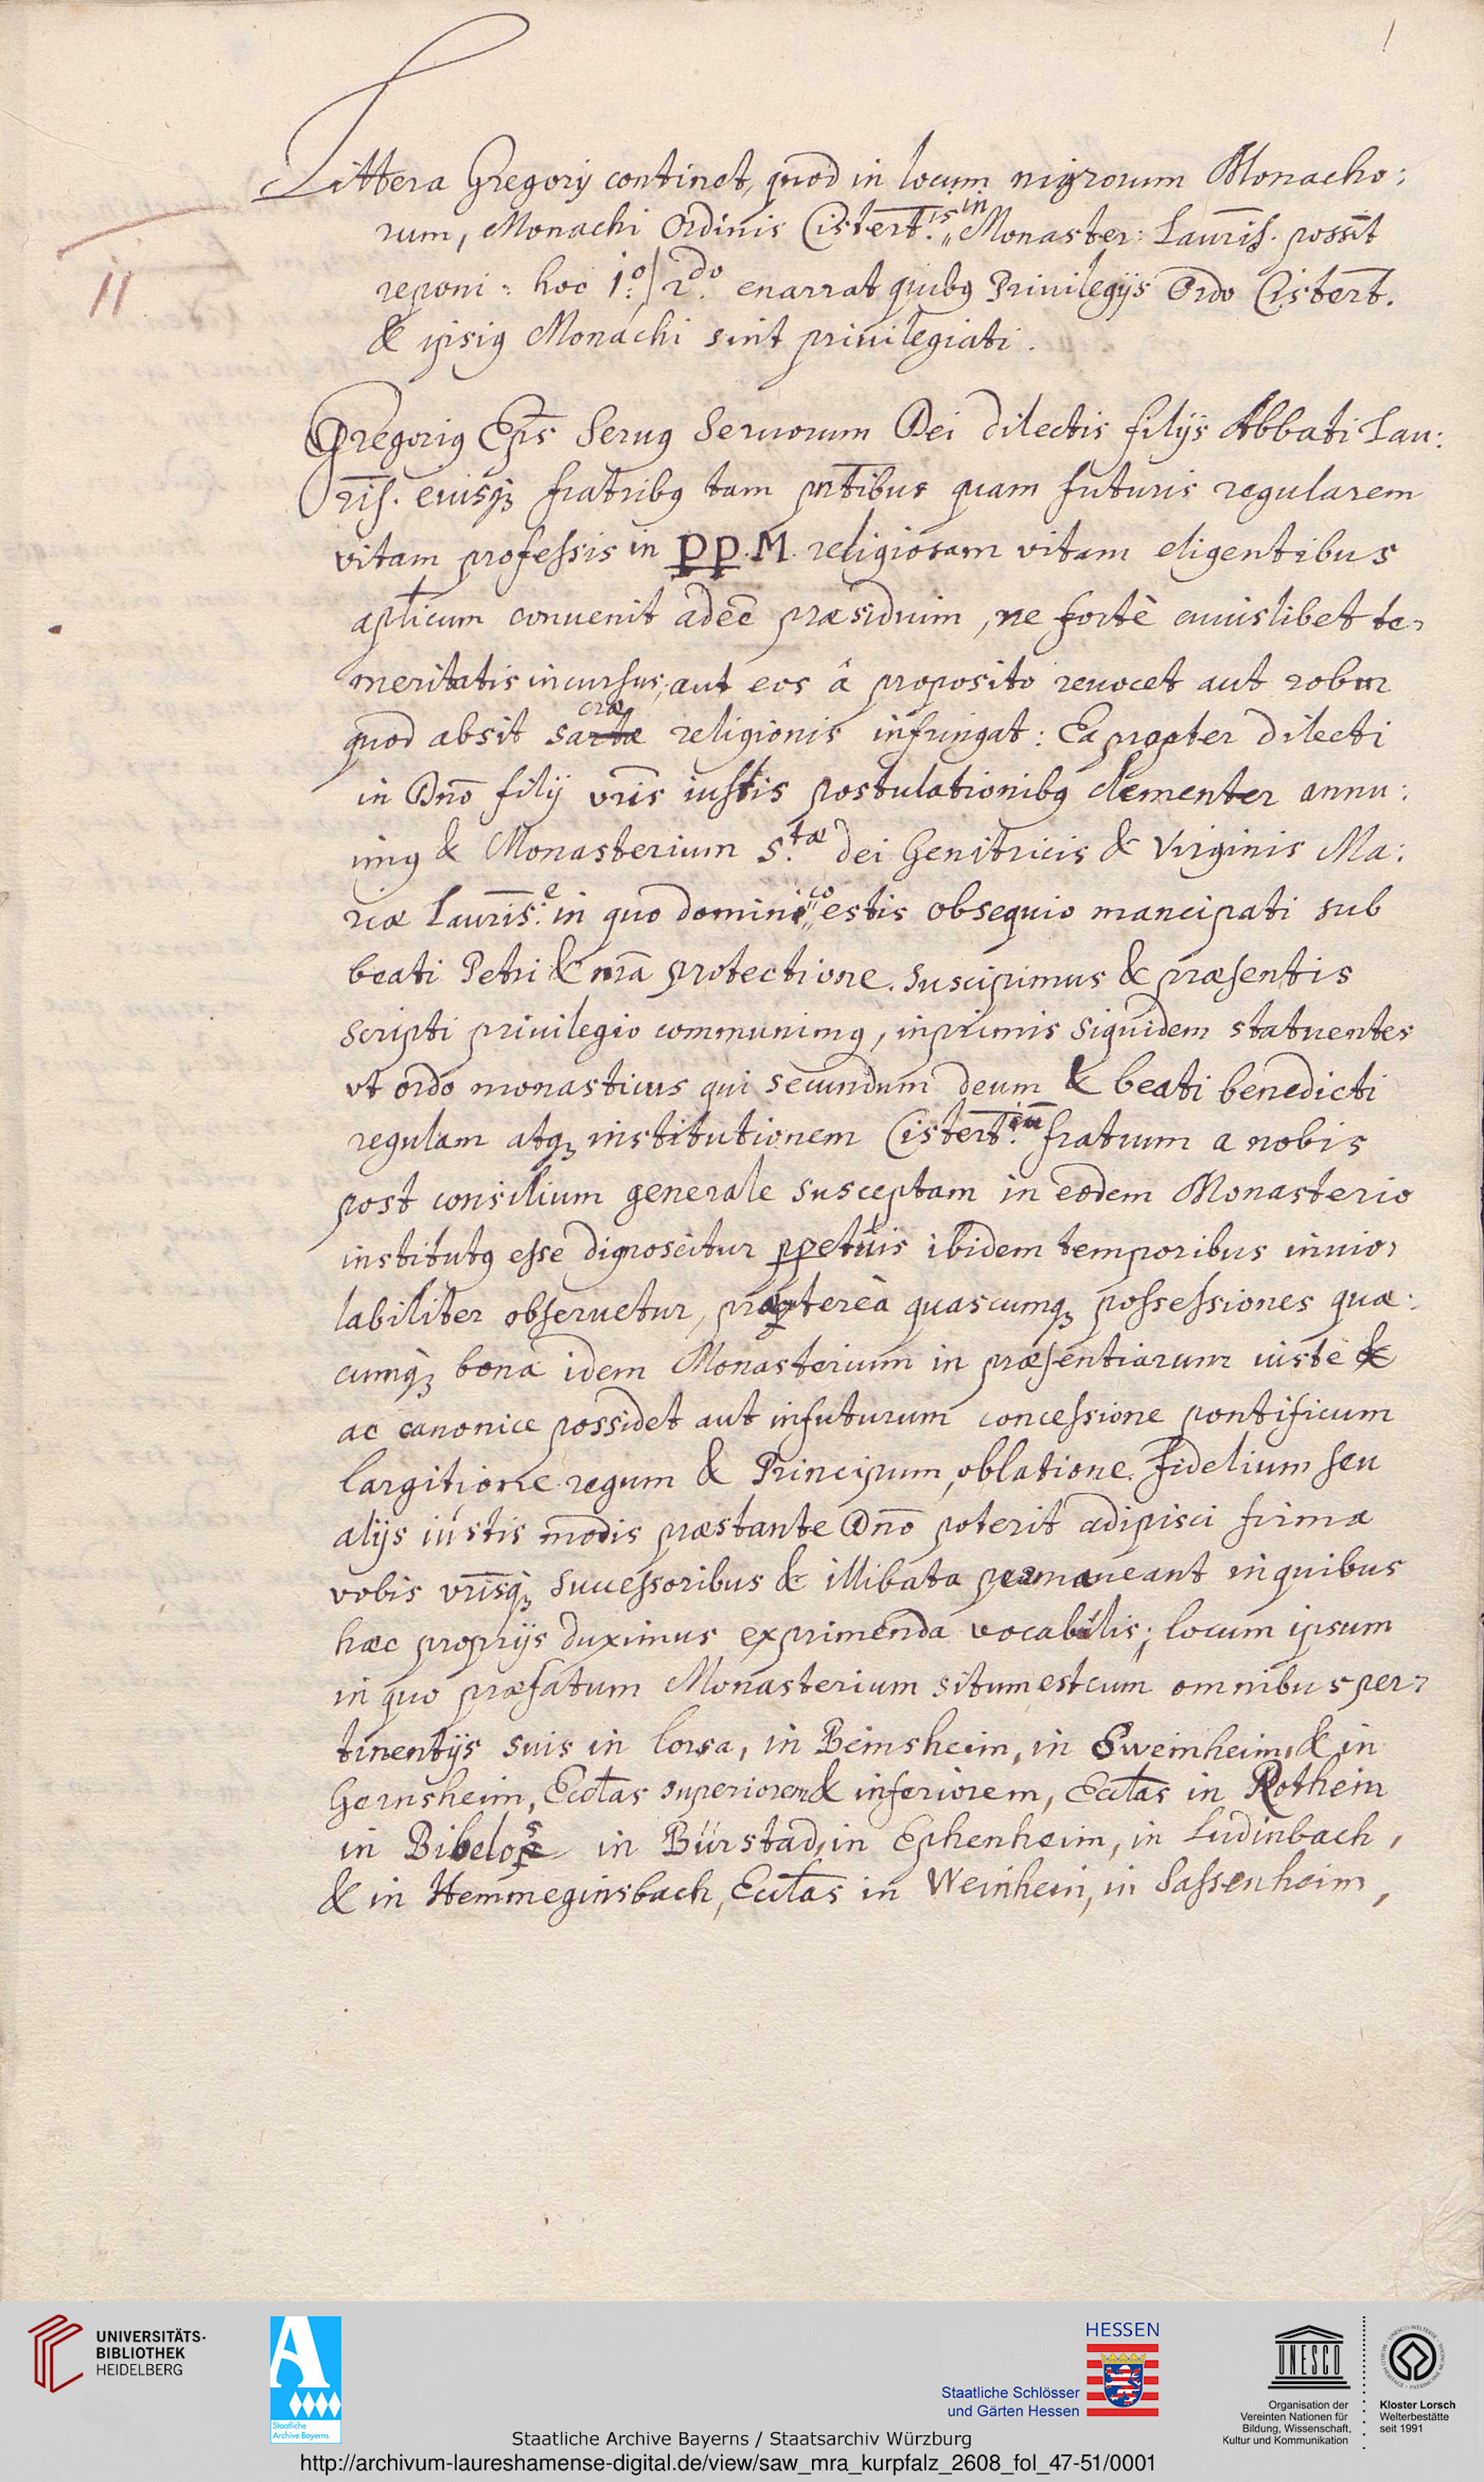 1
Littera Gregorij continet, quod in locum nigrorum Monacho:
rum, Monachi Ordinis Cistert.is in Monaster: Lauris. possit
reponi: hoc 1.o / 2.do enarrat quibꝰ Priuilegijs Ordo Cistert.
& ipsiꝰ Monachi sint priuilegiati.
II
Gregoriꝰ Ep̄s Seruꝰ Seruorum Dei dilectis filijs Abbati Lau:
ris. eiusqȝ fratribꝰ tam pn̄tibus quam futuris regularem
vitam professis in P P. M. religiosam vitam eligentibus
apl̄icum conuenit adeē præsidium, ne fortè cuiuslibet te-
meritatis incursus, aut eos â proposito reuocet aut robur
quod absit sacræ religionis infringat: Ea propter dilecti
in Dn̄o filij vr̄is iustis postulationibꝰ clementer annu:
imꝰ & Monasterium S.tæ dei Genitricis & Virginis Ma:
riæ Lauris.e in quo dominico estis obsequio mancipati sub
beati Petri & nr̄a protectione. suscipimus & præsentis
scripti priuilegio communimꝰ, inprimis siquidem statuentes
vt ordo monasticus qui secundum deum & beati benedicti
regulam atqȝ institutionem Cistert.iū fratrum a nobis
post consilium generale susceptam in eodem Monasterio
institutꝰ esse dignoscitur ꝑpetuis ibidem temporibus inuio-
labiliter obseruetur, præterèa quascumqȝ possessiones quæ:
cumqȝ bona idem Monasterium in præsentiarum iuste &
ac canonice possidet aut infuturum concessione pontificum
largitione regum & Principum, oblatione fidelium seu
alijs iustis modis præstante Dn̄o poterit adipisci firma
vobis vr̄isqȝ successoribus & illibata permaneant in quibus
hæc proprijs duximus exprimenda vocabulis; locum ipsum
in quo præfatum Monasterium situm est cum omnibus per-
tinentijs suis in lorsa, in Beinsheim, in Sweinheim, & in
Gernsheim, Eccl̄as superiorem & inferiorem, Eccl̄as in Rothein
in Bibelos in Bürstad, in Ephenheim, in Ludinbach,
& in Hemmeginsbach, Eccl̄as in Weinhein, in Sassenheim,
UNIVERSITÄTS-
BIBLIOTHEK
HEIDELBERG
Staatliche
Archive Bayerns
HESSEN
Staatliche Schlösser
und Gärten Hessen
UNESCO
Organisation der
Vereinten Nationen für
Bildung, Wissenschaft,
Kultur und Kommunikation
Kloster Lorsch
Welterbestätte
seit 1991
Staatliche Archive Bayerns / Staatsarchiv Würzburg
http://archivum-laureshamense-digital.de/view/saw_mra_kurpfalz_2608_fol_47-51/0001